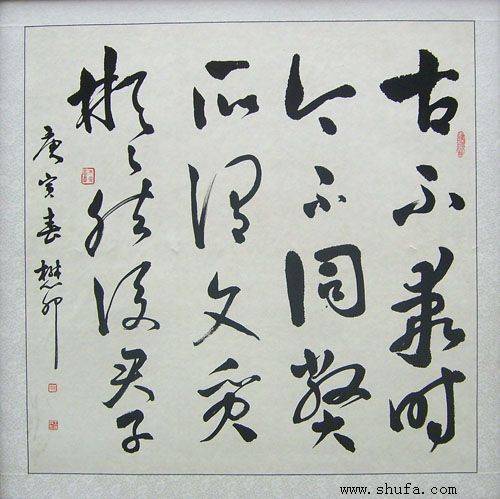 古不乖时
今不同弊
所谓文质
彬彬然后君子
庚寅春懋卯
www.shufa.com